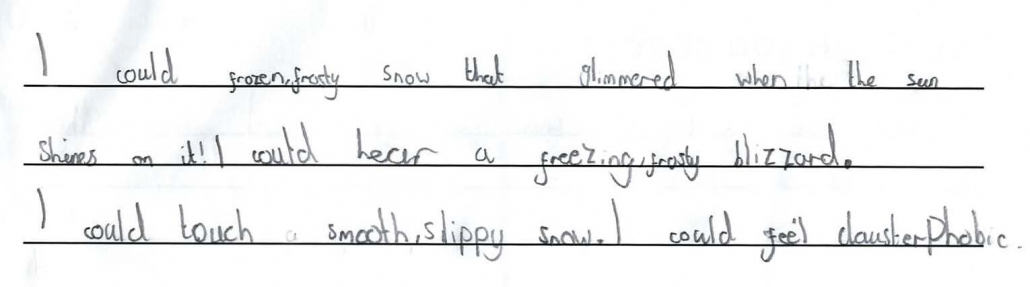 I could frozen, frosty snow that glimmered when the sun
shines on it! I could hear a freezing, frosty blizzard.
I could touch a smooth, slippy snow. I could feel clausterphobic.